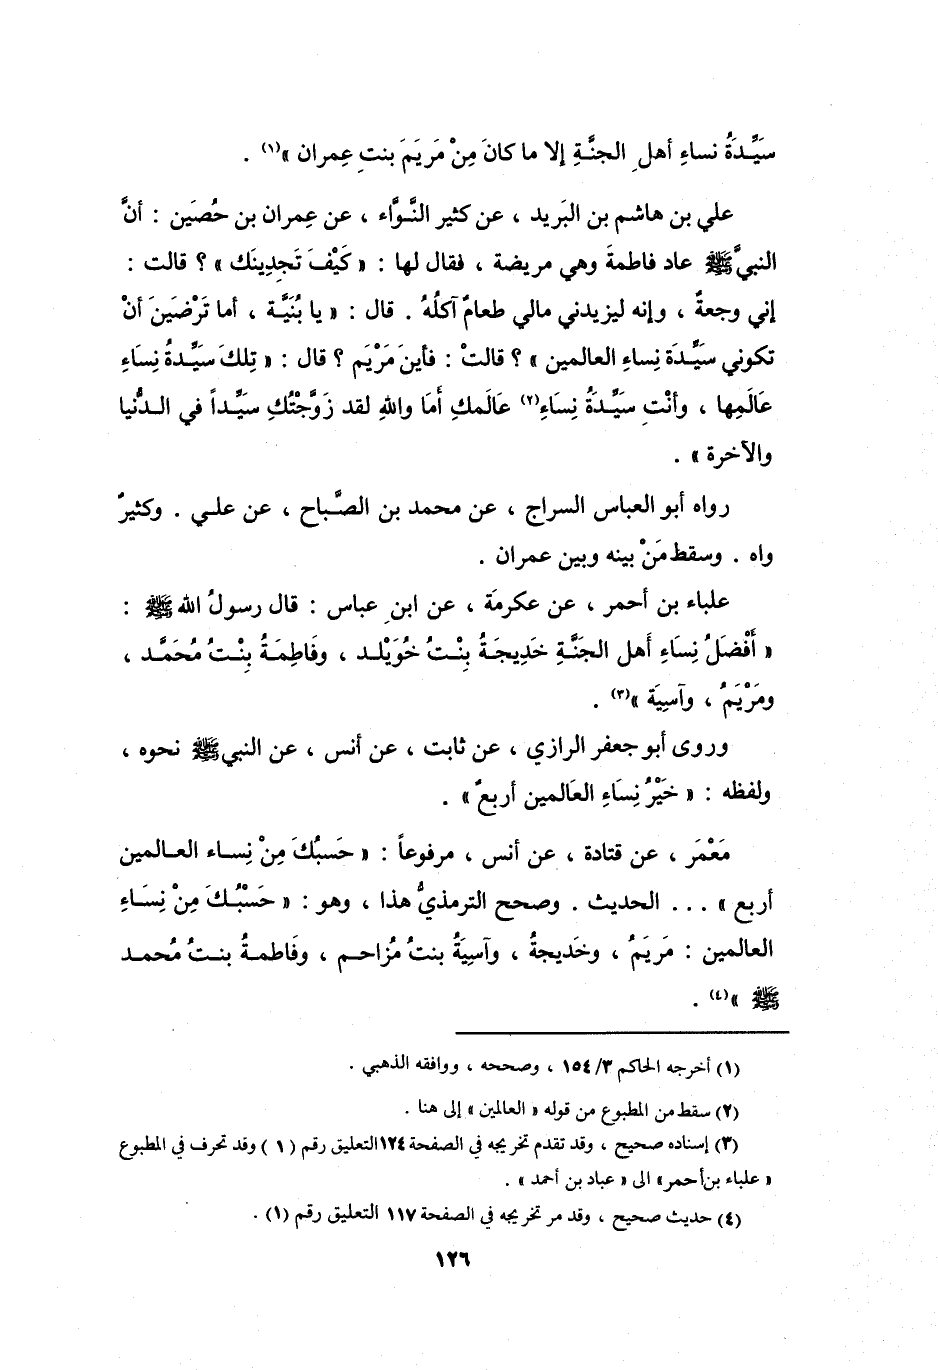 سَيِّدَةُ نساءِ أهلِ الجنَّةِ إلا ما كانَ مِنْ مَريَمَ بنتِ عِمران »(١) .
علي بن هاشم بن البَريد ، عن كثير النَّوَّاء ، عن عِمران بن حُصَين : أنَّ
النبيَّ ﷺ عاد فاطمةَ وهي مريضة ، فقال لها : « كَيْفَ تَجِدِينَك » ؟ قالت :
إني وجعةٌ ، وإنه ليزيدني مالي طعامٌ آكلُهُ . قال : « يا بُنَيَّة ، أما تَرْضَينَ أنْ
تكوني سَيِّدَة نِساءِ العالمين » ؟ قالتْ : فأينَ مَرْيَم ؟ قال : « تِلكَ سَيِّدةُ نِسَاءِ
عَالَمِها ، وأنْتِ سَيِّدَةُ نِسَاءِ(٢) عَالَمكِ أمَا واللهِ لقد زَوَّجْتُكِ سَيِّداً في الدُّنيا
والآخرة » .
رواه أبو العباس السراج ، عن محمد بن الصَّباح ، عن علي . وكثيرٌ
واه . وسقط مَنْ بينه وبين عمران .
علباء بن أحمر ، عن عكرمَة ، عن ابنِ عباس : قال رسولُ الله ﷺ :
« أَفْضَلُ نِسَاءِ أهل الجَنَّةِ خَدِيجَةُ بِنْتُ خُوَيْلد ، وفَاطِمَةُ بِنْتُ مُحَمَّد ،
ومَرْيَمُ ، وآسِيَة »(٣) .
وروى أبو جعفر الرازي ، عن ثابت ، عن أنس ، عن النبي ﷺ نحوه ،
ولفظه : « خَيْرُ نِسَاءِ العَالمين أربعٌ » .
مَعْمَر ، عن قتادة ، عن أنس ، مرفوعاً : « حَسبُكَ مِنْ نِساء العالمين
أربع » ... الحديث . وصحح الترمذيُّ هذا ، وهو : « حَسْبُكَ مِنْ نِسَاءِ
العالمين : مَريَمُ ، وخَديجةُ ، وآسِيَةُ بنتُ مُزاحم ، وفَاطمةُ بنتُ مُحمد
ﷺ »(٤) .
(١) أخرجه الحاكم ٣/ ١٥٤ ، وصححه ، ووافقه الذهبي .
(٢) سقط من المطبوع من قوله « العالمين » إلى هنا .
(٣) إسناده صحيح ، وقد تقدم تخريجه في الصفحة ١٢٤ التعليق رقم ( ١ ) وقد تحرف في المطبوع
« علباء بن أحمر» الى « عباد بن أحمد » .
(٤) حديث صحيح ، وقد مر تخريجه في الصفحة ١١٧ التعليق رقم (١) .
١٢٦